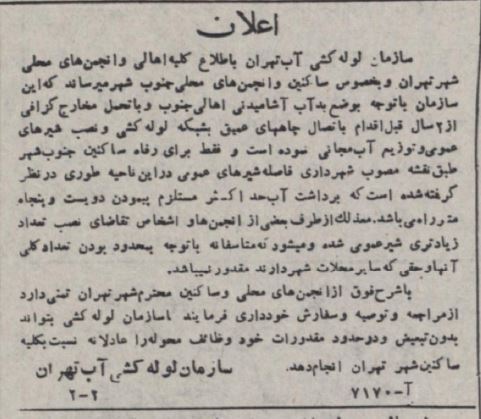 اعلان
سازمان لوله کشی آب تهران باطلاع کلیه اهالی وانجمن‌های محلی
شهرتهران وبخصوص ساکنین وانجمن‌های محلی‌جنوب شهرمیرساند که‌این
سازمان باتوجه بوضع بدآب آشامیدنی اهالی‌جنوب وباتحمل مخارج گزافی
از۲سال قبل‌اقدام باتصال چاههای عمیق بشبکه لوله کشی ونصب شیرهای
عمومی‌وتوزیع آب‌مجانی نموده است و فقط برای رفاه ساکنین جنوب‌شهر
طبق‌نقشه مصوب شهرداری فاصله‌شیرهای عمومی دراین‌ناحیه طوری درنظر
گرفته‌شده است‌که برداشت آب‌حداکثر مستلزم پیمودن دویست وپنجاه
مترراه‌می‌باشد.معذلک‌ازطرف بعضی‌از انجمن‌هاو اشخاص تقاضای نصب تعداد
زیادتری شیرعمومی شده ومیشود‌که‌متاسفانه باتوجه بمحدود بودن تعدادکلی
آنهاوحقی‌که‌سایرمحلات شهردارند مقدورنمیباشد.
باشرح‌فوق ازانجمن‌های محلی وساکنین محترم‌شهرتهران تمنی‌دارد
ازمراجعه وتوصیه وسفارش خودداری فرمایند تاسازمان لوله کشی بتواند
بدون‌تبعیض ودرحدود مقدورات خود وظائف محوله‌را عادلانه نسبت‌بکلیه
ساکنین‌شهر تهران انجام‌دهد. سازمان لوله کشی آب تهران
آ-۷۱۷۰ ۲-۲